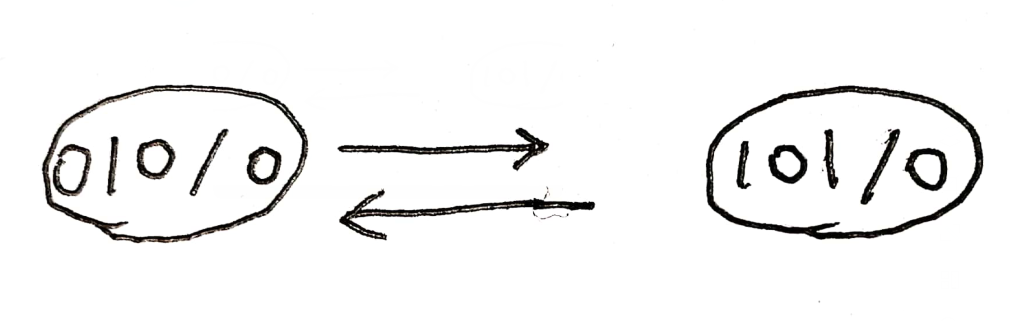 010/0
101/0